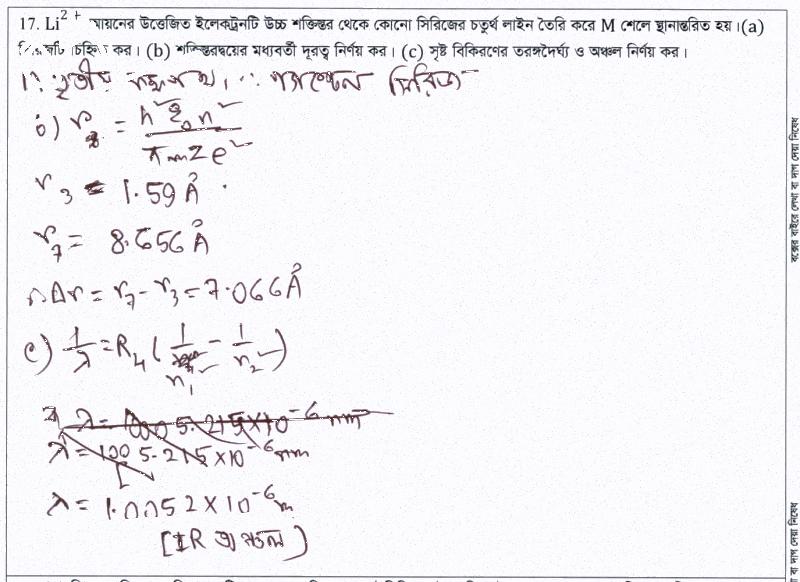 17. Li²⁺ আয়নের উত্তেজিত ইলেকট্রনটি উচ্চ শক্তিস্তর থেকে কোনো সিরিজের চতুর্থ লাইন তৈরি করে M শেলে স্থানান্তরিত হয়। (a)
চিহ্নিত কর। (b) শক্তিস্তরদ্বয়ের মধ্যবর্তী দূরত্ব নির্ণয় কর। (c) সৃষ্ট বিকিরণের তরঙ্গদৈর্ঘ্য ও অঞ্চল নির্ণয় কর।
তৃতীয় কক্ষপথ, ∴ প্যাশ্চেন সিরিজ
b) r = h²ε₀n² / πmze²
r₃ = 1.59 Å
r₇ = 8.656 Å
∴ Δr = r₇ - r₃ = 7.066 Å
c) 1/λ = R₄ (1/n₁² - 1/n₂²)
λ = 5.215 × 10⁻⁶ mm
λ = 1005.215 × 10⁻⁶ mm
λ = 1.0052 × 10⁻⁶ m
[IR অঞ্চল]
বক্সের বাইরে লেখা বা দাগ দেয়া নিষেধ
বা দাগ দেয়া নিষেধ